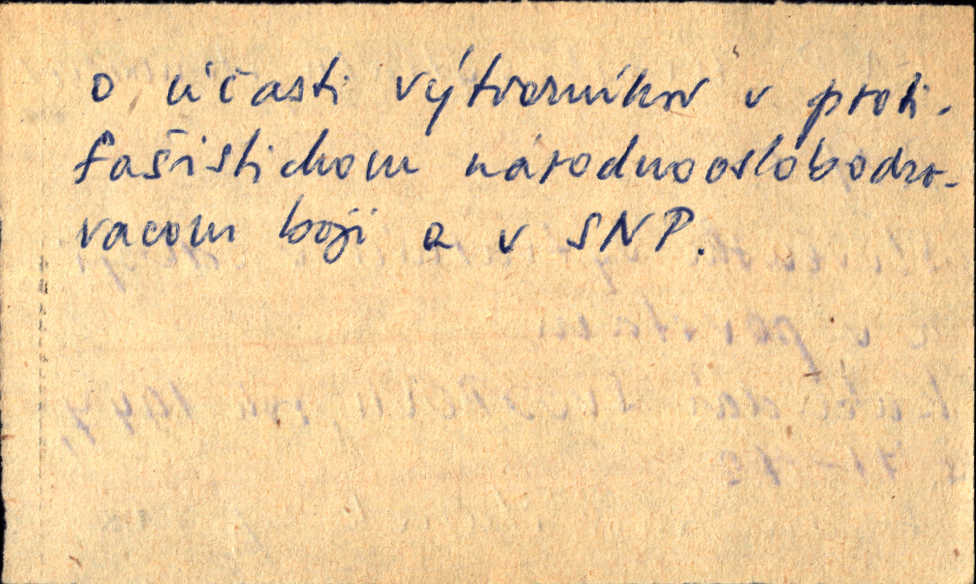 o účasti výtvarníkov v proti-
fašistickom národnooslobodzo-
vacom boji a v SNP.